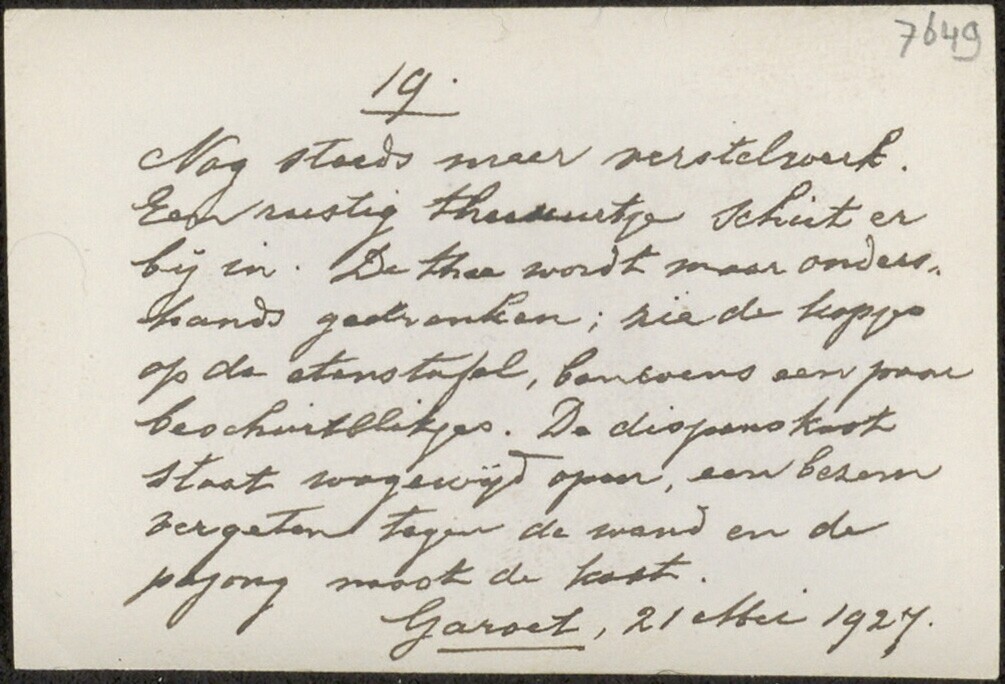 7649
19.
Nog steeds meer verstelwerk.
Een rustig theeuurtje schiet er
bij in. De thee wordt maar onders-
hands gedronken; zie de kopjes
op de etenstafel, benevens een paar
beschuitblikjes. De dispenskast
staat wagewijd open, een bezem
vergeten tegen de wand en de
pajong naast de kast.
Garoet, 21 Mei 1927.